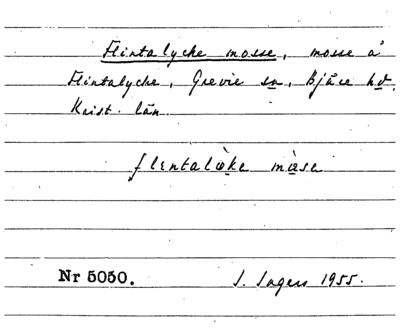 Flintalycke mosse, mosse å
Flintalycke, Grevie sn, Bjäre hd,
Krist. län.
flentalø̀ke mɑ̀se
Nr 5050.
S. Ingers 1955.